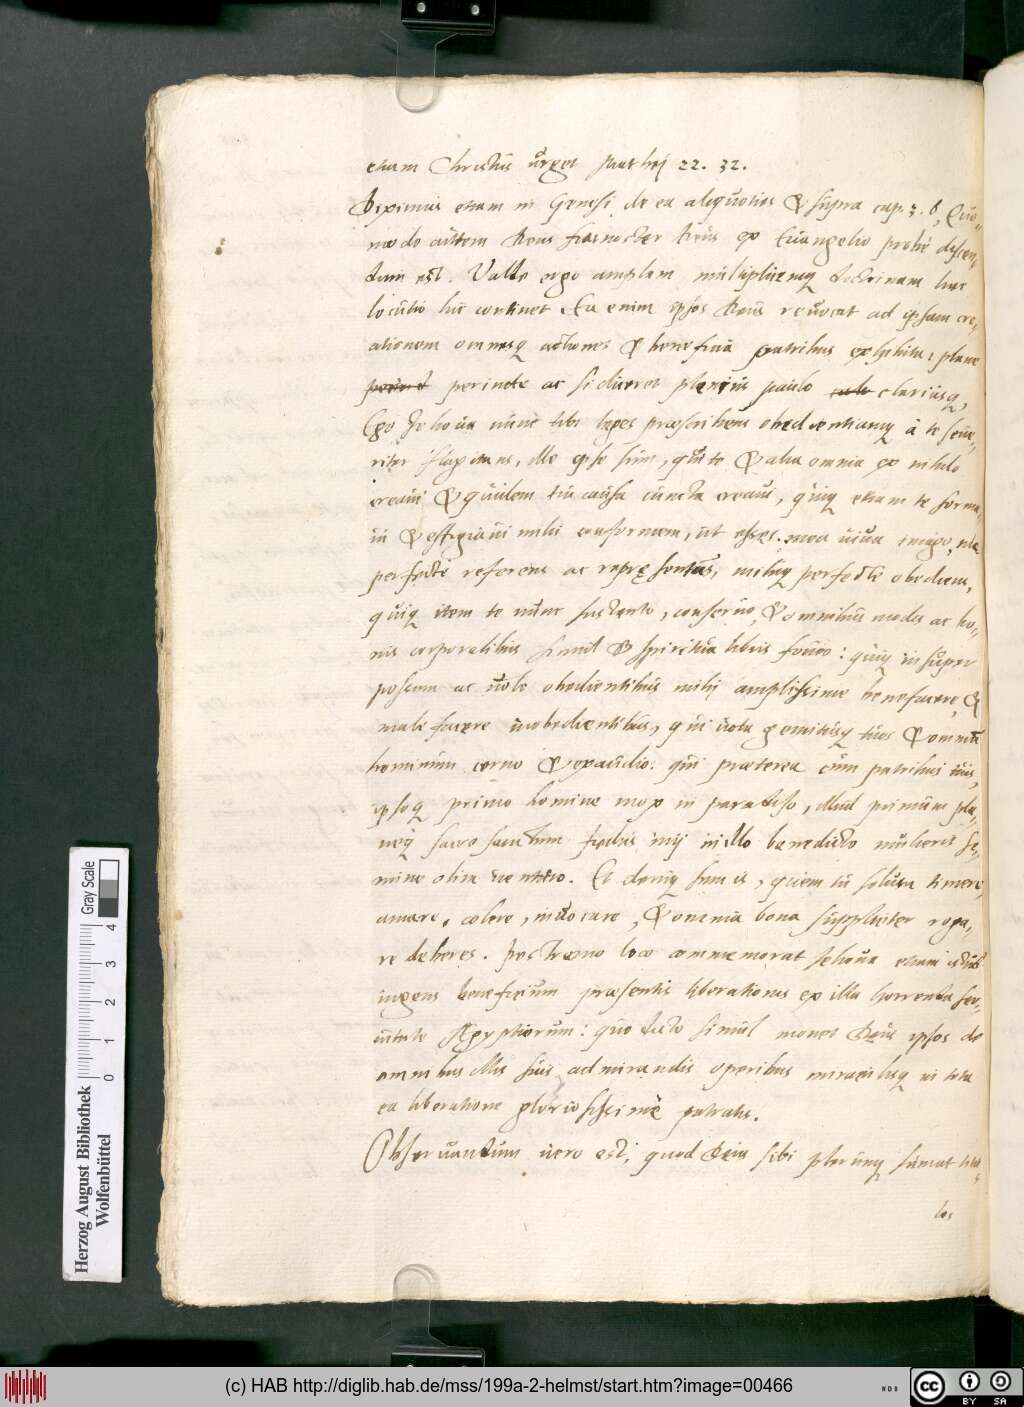 etiam Christus urget Matthej 22. 32.
Diximus etiam in Genesi de ea aliquoties & supra cap. 3. 6, Quo=
modo autem Deus ex Euangelio probè discen=
dum est. Valde ergo amplam multiplicemq doctrinam haec
locutio hic continet. Ea enim ipsos Deus reuocat ad ipsam cre=
ationem omnesq actiones & beneficia patribus exhibita, plane
perinde ac si diceret plenius paulo clariusq,
Ego Jehoua nunc tibi leges praescribens obedientiamq à te seue=
riter flagitans, ille ipse sum, qui te & alia omnia ex nihilo
creaui & quidem tui causa cuncta creaui, quiq etiam te forma=
ui & effigiaui mihi conformem, ut esses mea uiua imago, me
perfectè referens ac repręsentans, mihiq perfectè obediens,
quiq item te nunc sustento, conseruo, & omnibus modis ac bo=
nis corporalibus simul & spiritualibus foueo: quiq insuper
possum ac uolo obedientibus mihi amplissime benefacere, &
male facere inobedientibus, qui uota gemitusq tuos & omnium
hominum cerno & exaudio: qui praeterea cum patribus tuis,
ipsoq primo homine mox in paradiso, illud primum pla=
neq sacrosanctum foedus inij in illo benedicto mulieris se=
mine olim uenturo. Et deniq sum is, quem tu solum timere,
amare, colere, inuocare, & omnia bona suppliciter roga=
re deberes. Postremo loco commemorat Jehoua etiam istud
ingens beneficium praesentis liberationis ex illa horrenda ser=
uitute Aegyptiorum: quo dicto simul monet Deus ipsos de
omnibus illis suis admirandis operibus miraculisq in tota
ea liberatione gloriosissimè patratis.
Obseruandum uero est, quod Deus sibi plerunq sumat titu=
los
Herzog August Bibliothek
Wolfenbüttel
0 1 2 3 4
Gray Scale
(c) HAB http://diglib.hab.de/mss/199a-2-helmst/start.htm?image=00466
cc BY SA